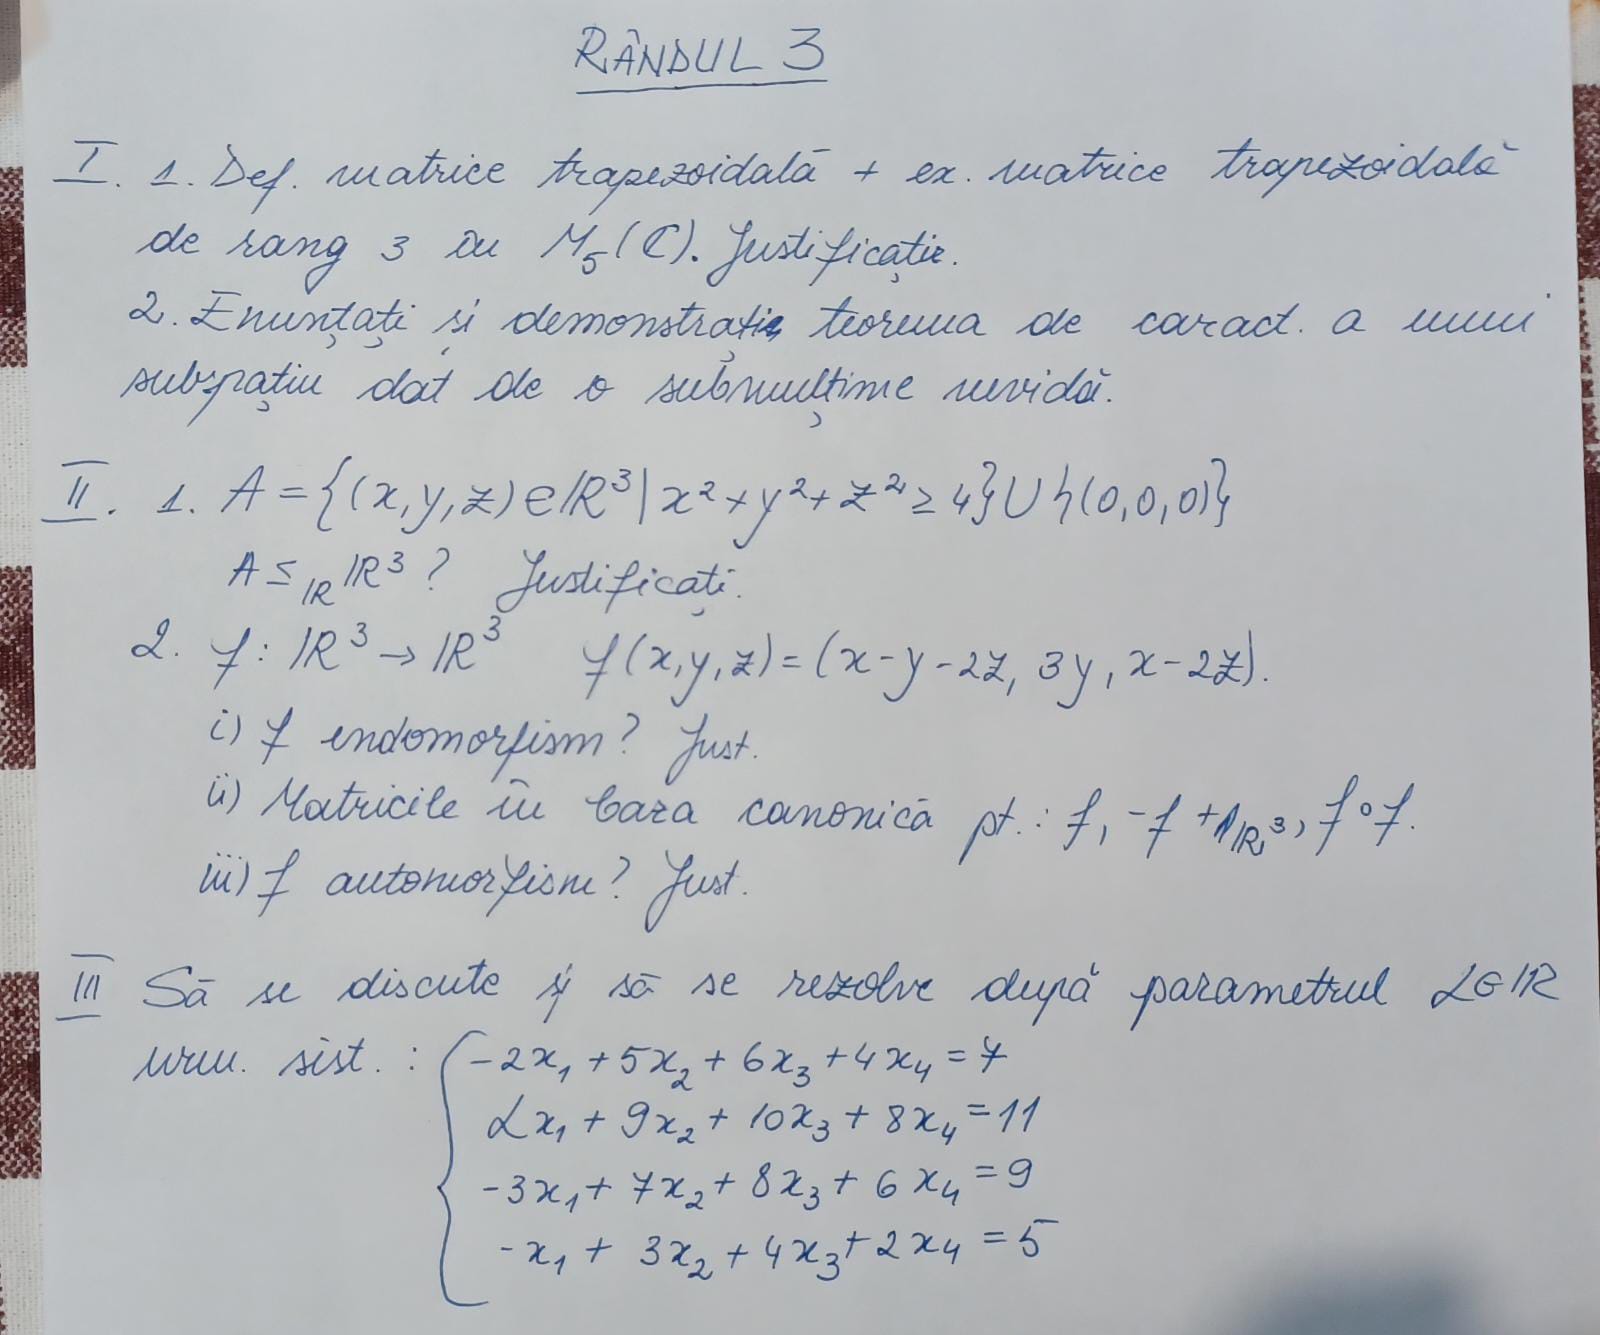 RÂNDUL 3
I. 1. Def. matrice trapezoidală + ex. matrice trapezoidală
de rang 3 în M₅(ℂ). Justificație.
2. Enunțați și demonstrație teorema de caract. a unui
subspațiu dat de o submulțime nevidă.
II. 1. A = {(x,y,z) ∈ ℝ³ | x² + y² + z² ≥ 4} ∪ {(0,0,0)}
A ≤_ℝ ℝ³? Justificați.
2. f: ℝ³ → ℝ³ f(x,y,z) = (x-y-2z, 3y, x-2z).
i) f endomorfism? Just.
ii) Matricile în baza canonică pt.: f, -f + 1_ℝ³, f∘f.
iii) f automorfism? Just.
III Să se discute și să se rezolve după parametrul α∈ℝ
urm. sist.: { -2x₁ + 5x₂ + 6x₃ + 4x₄ = 7
αx₁ + 9x₂ + 10x₃ + 8x₄ = 11
-3x₁ + 7x₂ + 8x₃ + 6x₄ = 9
-x₁ + 3x₂ + 4x₃ + 2x₄ = 5